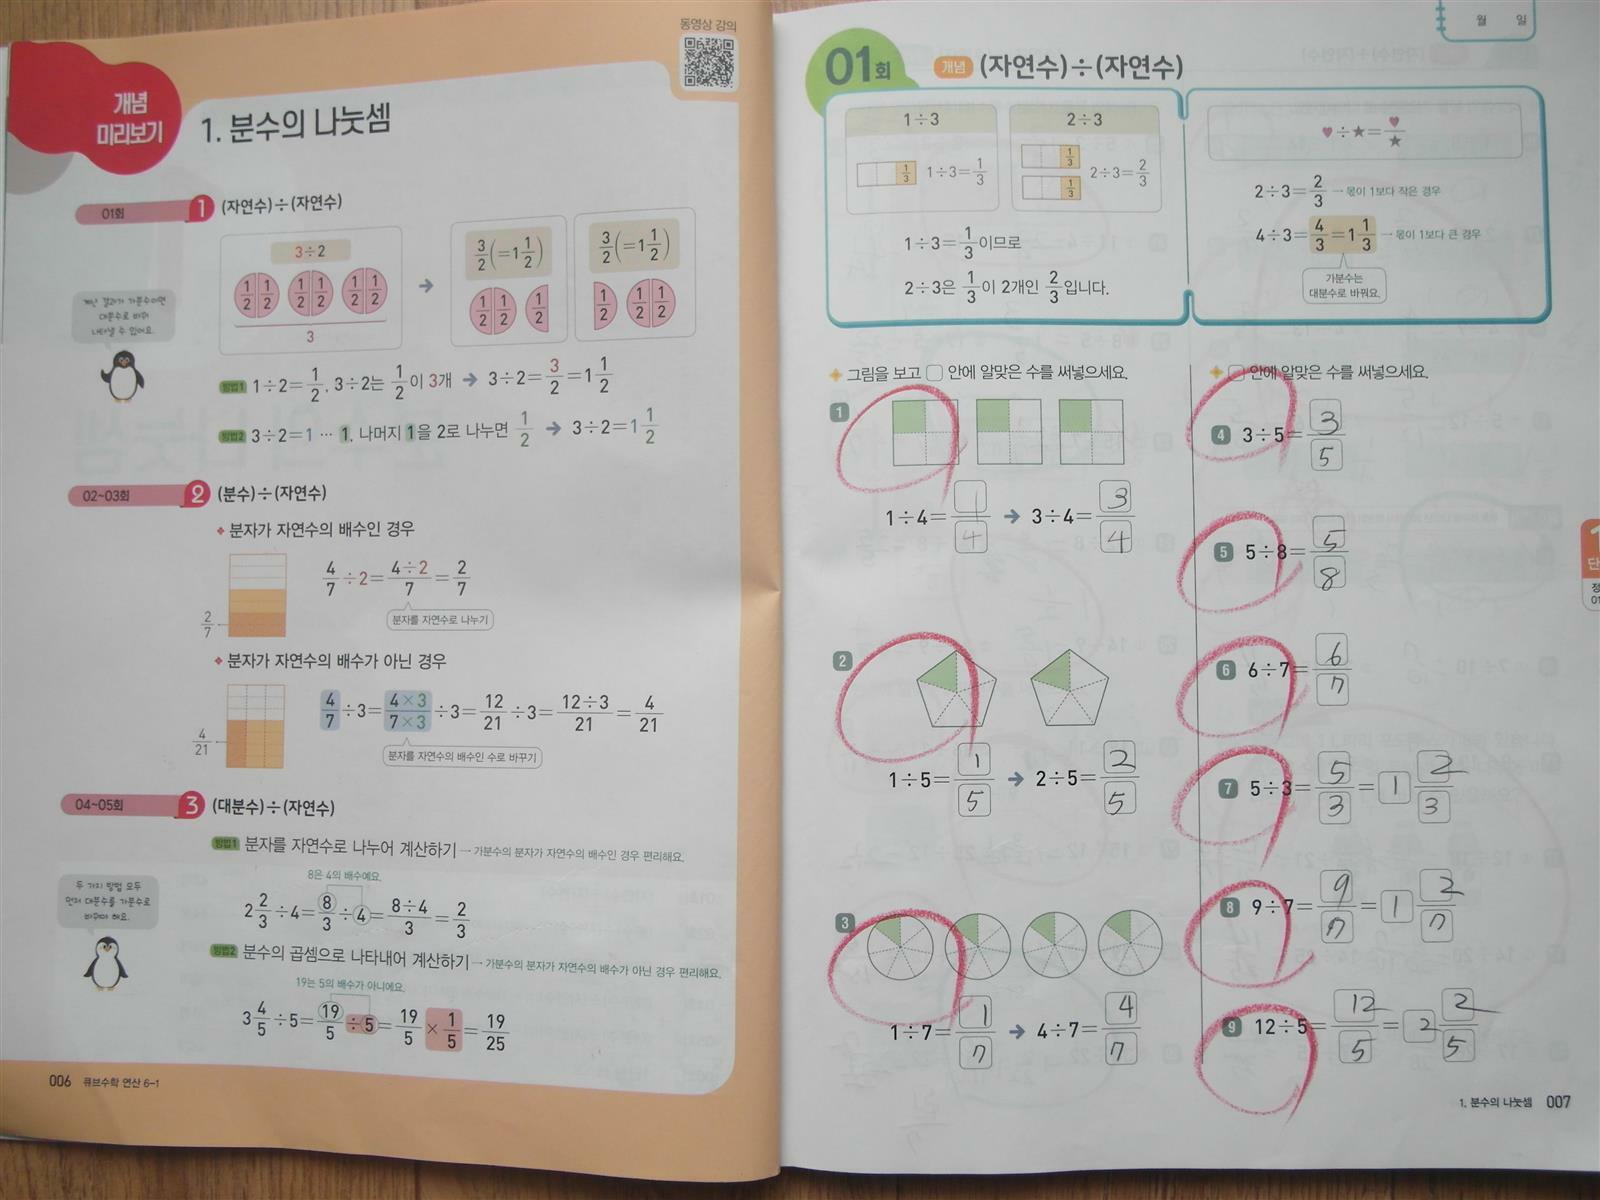 동영상 강의
개념
미리보기
1. 분수의 나눗셈
01회 1 (자연수)÷(자연수)
3÷2
1/2 1/2 1/2 1/2 1/2 1/2
3
→
3/2(=1 1/2)
1/2 1/2 1/2
3/2(=1 1/2)
1/2 1/2 1/2
계산 결과가 가분수이면
대분수로 바꿔
나타낼 수 있어요.
방법1 1÷2=1/2, 3÷2는 1/2이 3개 → 3÷2=3/2=1 1/2
방법2 3÷2=1 … 1, 나머지 1을 2로 나누면 1/2 → 3÷2=1 1/2
02~03회 2 (분수)÷(자연수)
분자가 자연수의 배수인 경우
2/7
4/7÷2=4÷2/7=2/7
분자를 자연수로 나누기
분자가 자연수의 배수가 아닌 경우
4/21
4/7÷3=4×3/7×3÷3=12/21÷3=12÷3/21=4/21
분자를 자연수의 배수인 수로 바꾸기
04~05회 3 (대분수)÷(자연수)
방법1 분자를 자연수로 나누어 계산하기 → 가분수의 분자가 자연수의 배수인 경우 편리해요.
8은 4의 배수예요.
2 2/3÷4=8/3÷4=8÷4/3=2/3
두 가지 방법 모두
먼저 대분수를 가분수로
바꿔야 해요.
방법2 분수의 곱셈으로 나타내어 계산하기 → 가분수의 분자가 자연수의 배수가 아닌 경우 편리해요.
19는 5의 배수가 아니에요.
3 4/5÷5=19/5÷5=19/5×1/5=19/25
006 큐브수학 연산 6-1
월 일
01회 개념 (자연수)÷(자연수)
1÷3
1/3 1÷3=1/3
2÷3
1/3 1/3 2÷3=2/3
1÷3=1/3이므로
2÷3은 1/3이 2개인 2/3입니다.
♥÷★=♥/★
2÷3=2/3 → 몫이 1보다 작은 경우
4÷3=4/3=1 1/3 → 몫이 1보다 큰 경우
가분수는
대분수로 바꿔요.
그림을 보고 □ 안에 알맞은 수를 써넣으세요.
1
1÷4=1/4 → 3÷4=3/4
2
1÷5=1/5 → 2÷5=2/5
3
1÷7=1/7 → 4÷7=4/7
□ 안에 알맞은 수를 써넣으세요.
4 3÷5=3/5
5 5÷8=5/8
6 6÷7=6/7
7 5÷3=5/3=1 2/3
8 9÷7=9/7=1 2/7
9 12÷5=12/5=2 2/5
1
단
01
1. 분수의 나눗셈 007